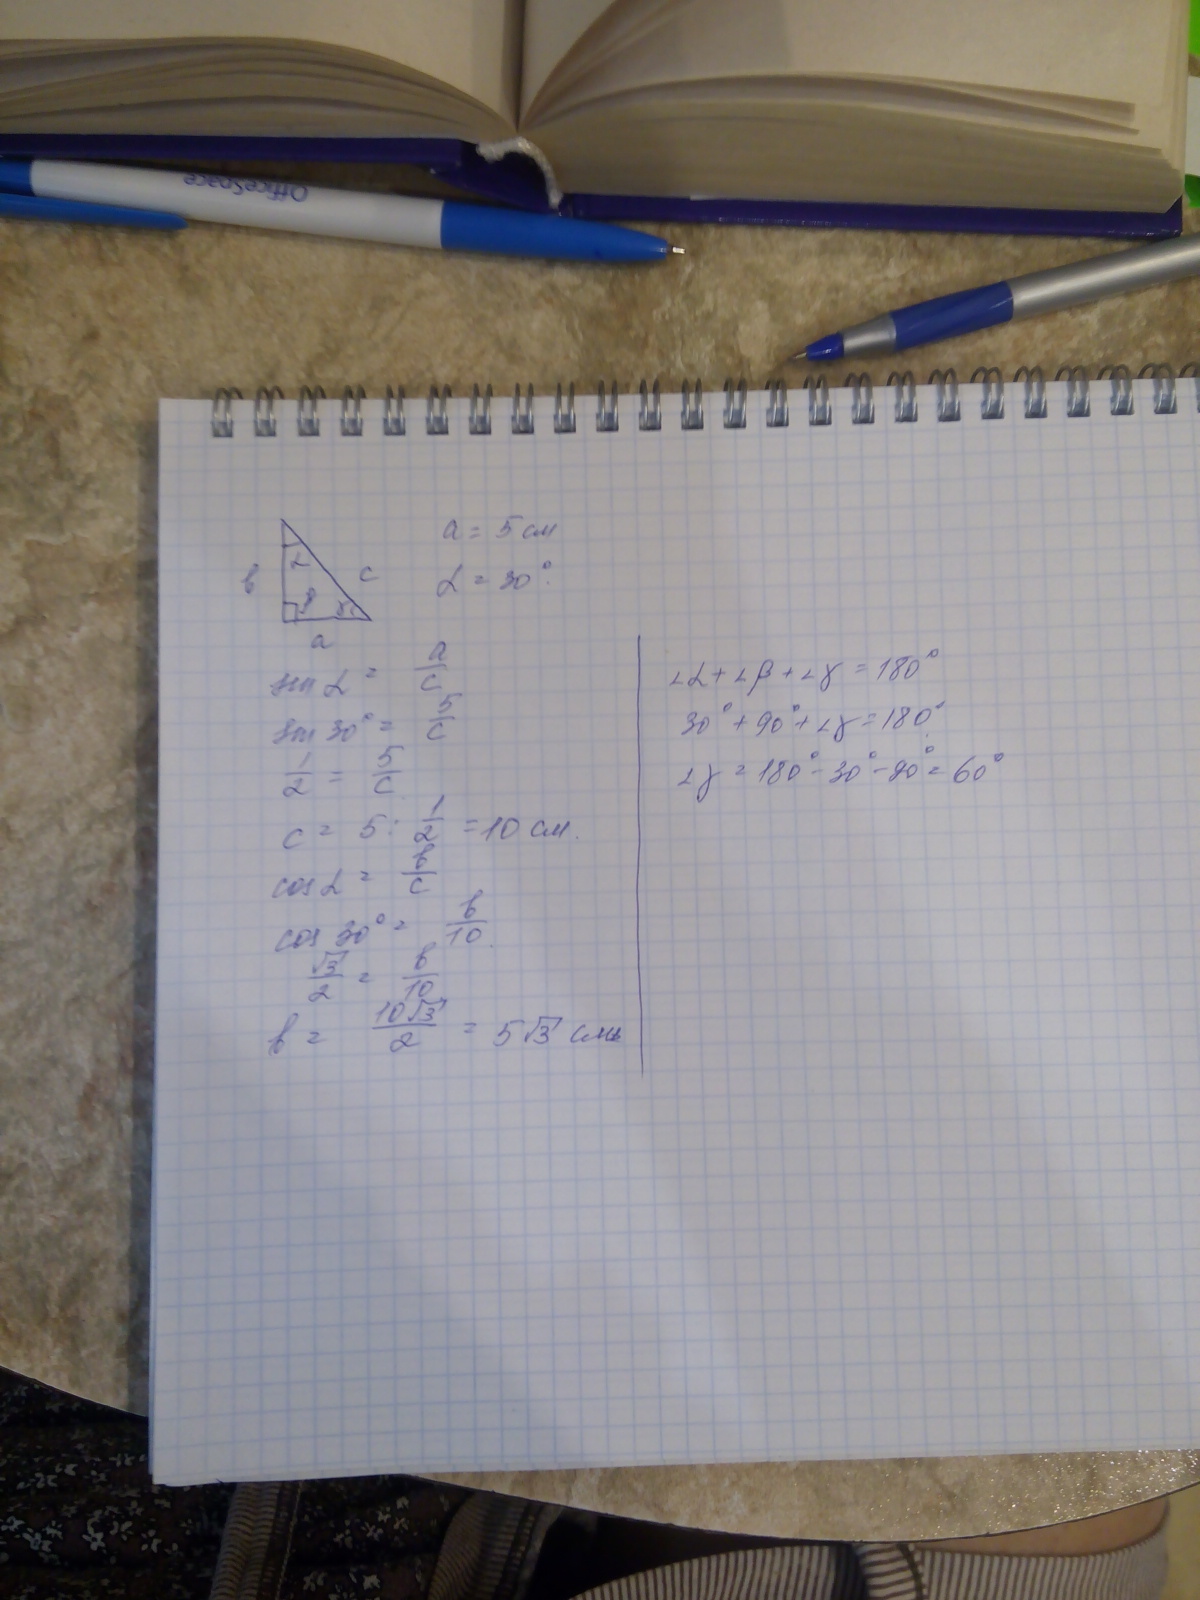 OfficeSpace
a = 5 см
α = 30°
α
b
c
β
γ
a
sin α = a/c
sin 30° = 5/c
1/2 = 5/c
c = 5 : 1/2 = 10 см.
cos α = b/c
cos 30° = b/10
√3/2 = b/10
b = 10√3/2 = 5√3 см
∠α + ∠β + ∠γ = 180°
30° + 90° + ∠γ = 180°
∠γ = 180° - 30° - 90° = 60°